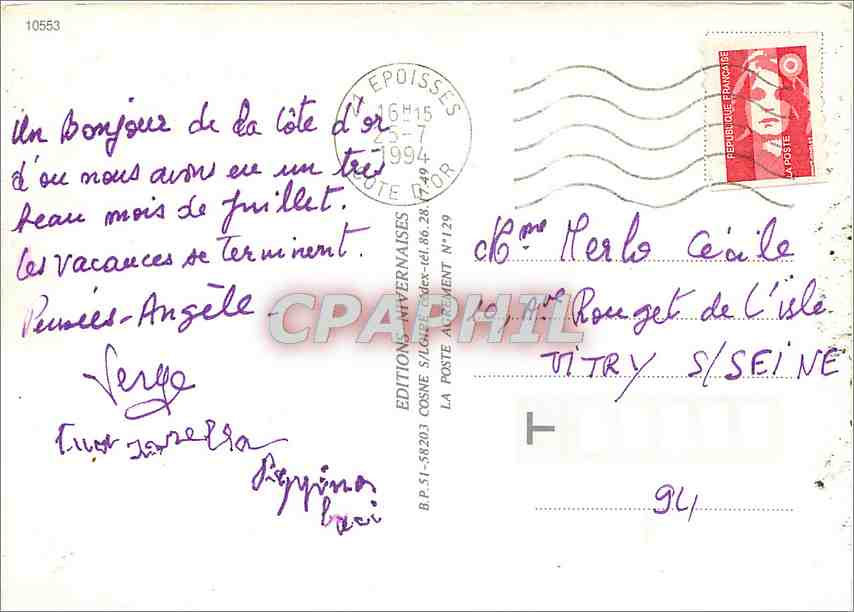 10553
Un Bonjour de la Côte d'or
d'ou nous avons eu un très
beau mois de Juillet.
Les vacances se Terminent.
Pensées - Angèle -
Serge
EPOISSES
16H15
25-7
1994
COTE D'OR
REPUBLIQUE FRANÇAISE
LA POSTE
EDITIONS NIVERNAISES
B.P. 51-58203 COSNE S/LOIRE Cédex-tél. 86.28.17.49
LA POSTE AGREMENT N° 129
CPAPHIL
Mme Merlo Cécile
10, Ave Rouget de L'isle
VITRY S/SEINE
T
94